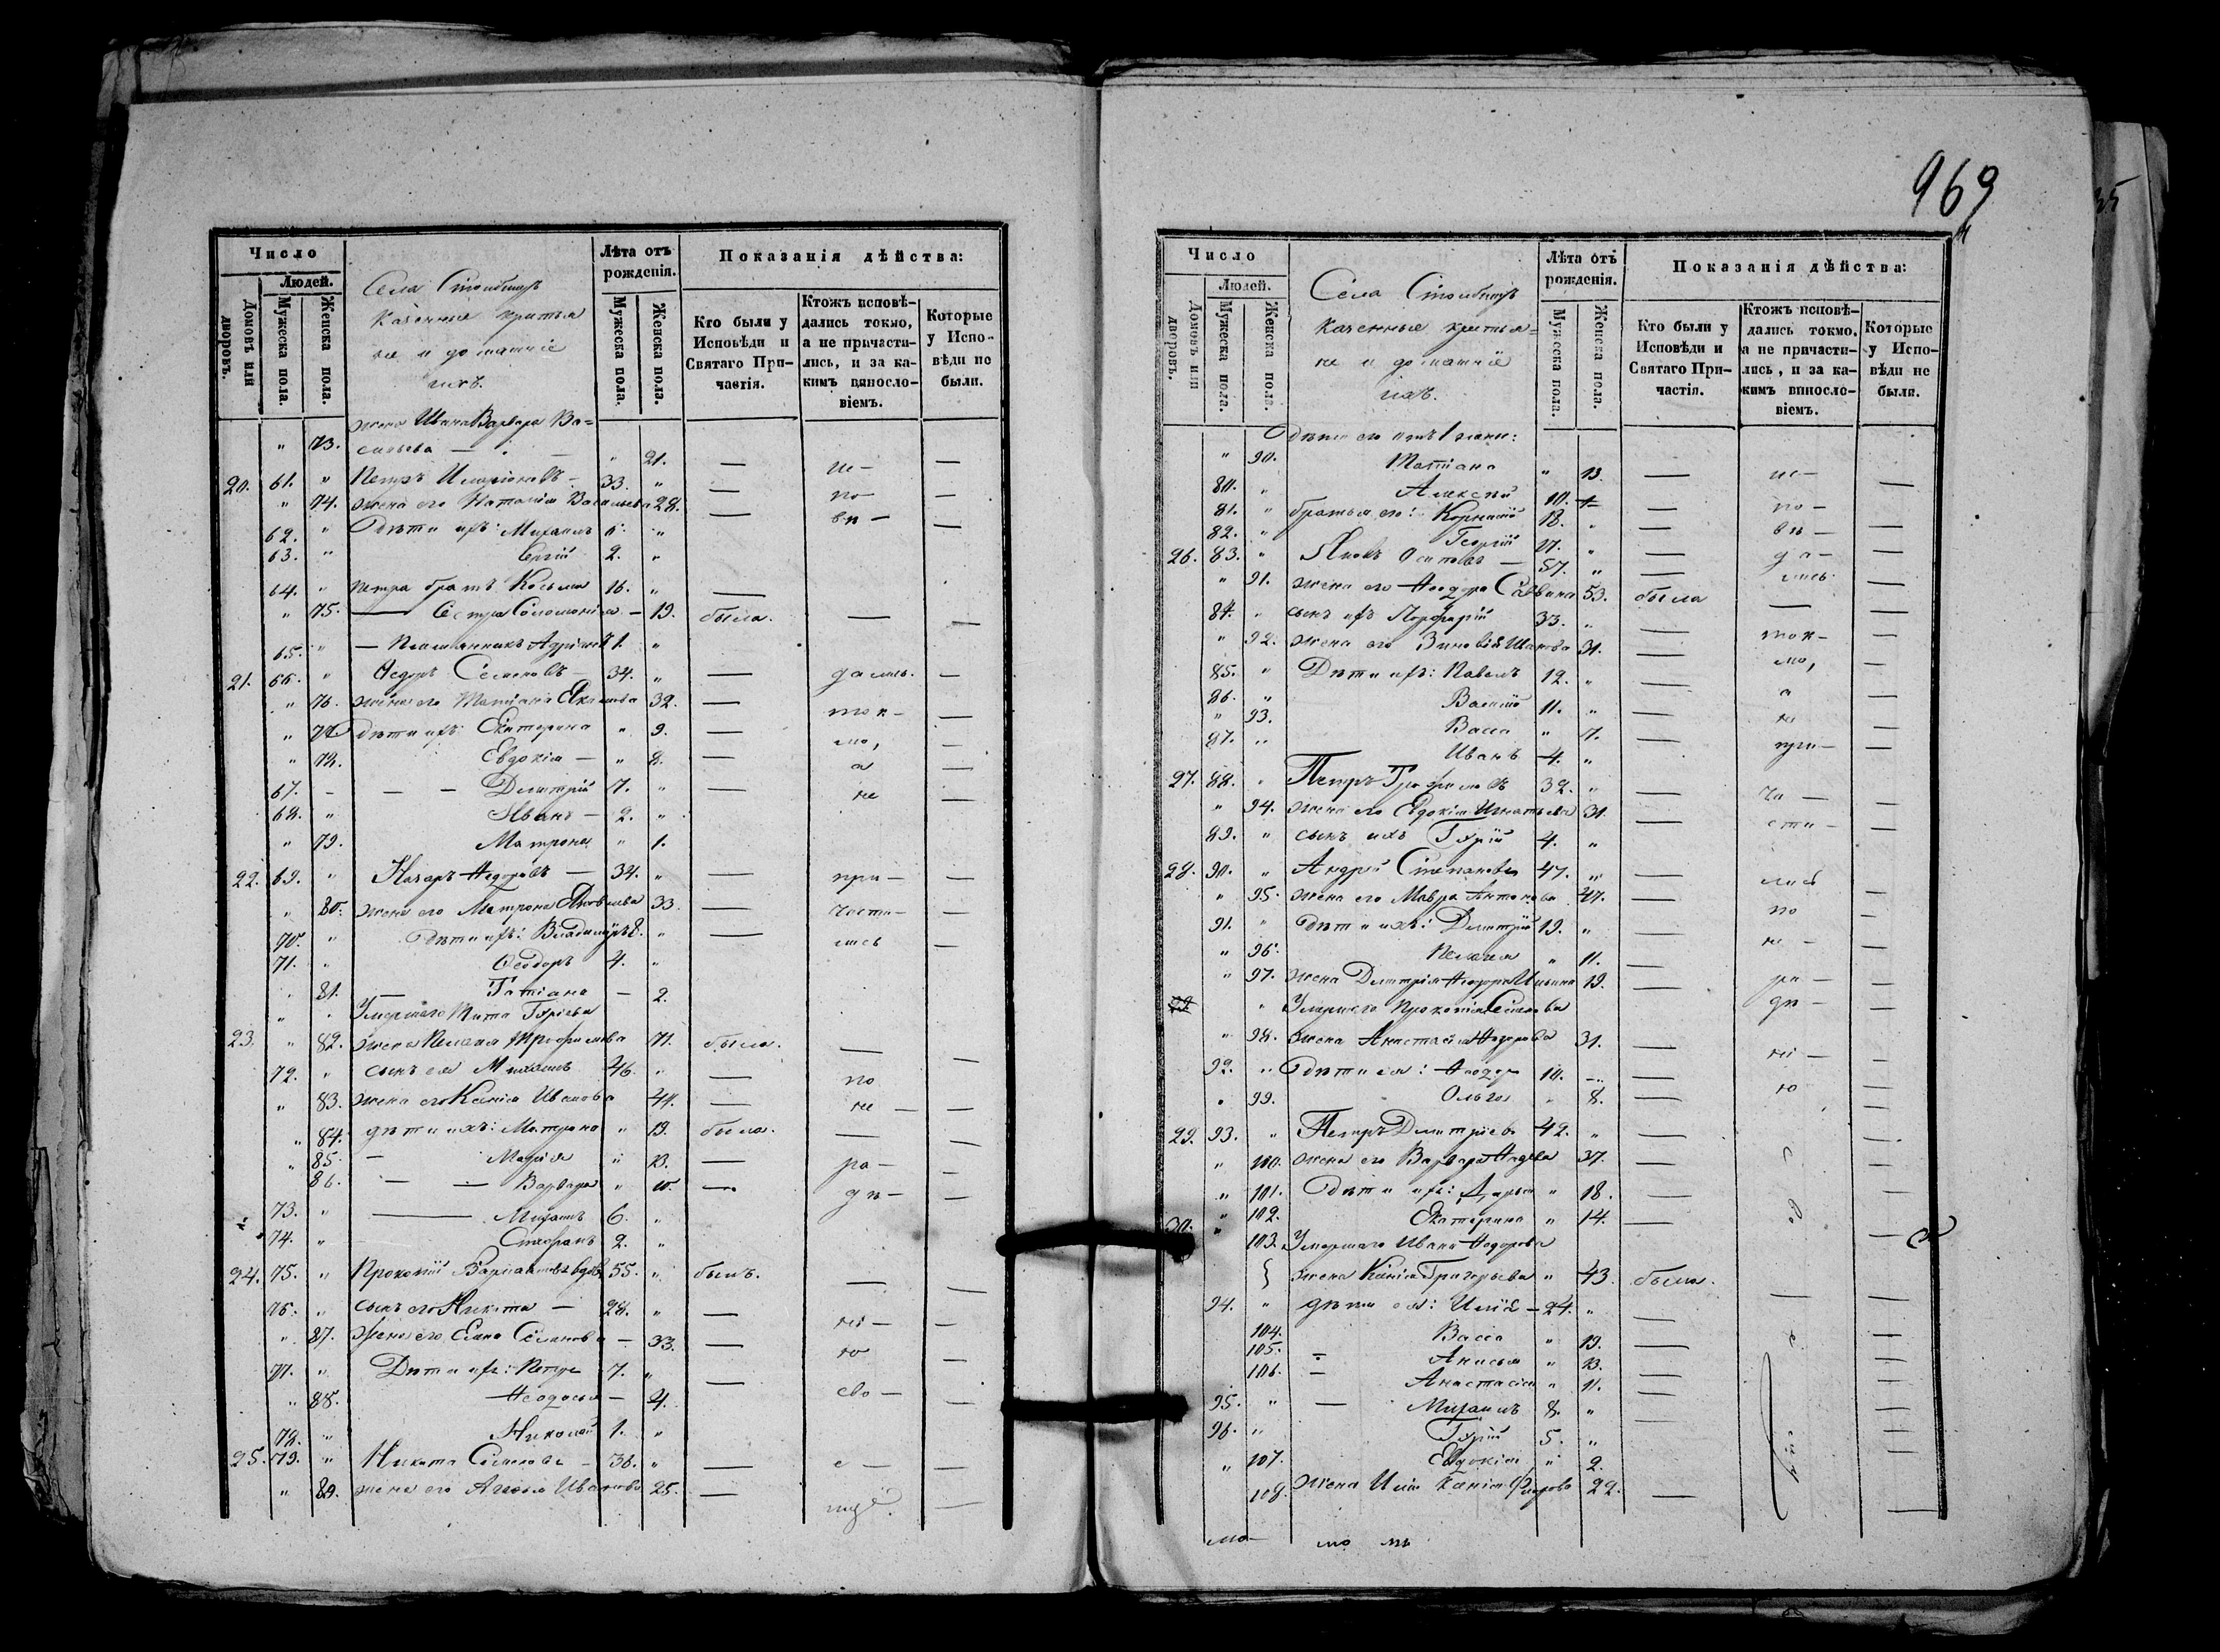 Число
Людей.
Домовъ или дворовъ.
Мужеска пола.
Женска пола.
Села
казенные крестья
не и домашніе
ихъ.
Лѣта отъ рожденія.
Мужеска пола.
Женска пола.
Показанія дѣйства:
Кто были у Исповѣди и Святаго Причастія.
Ктожъ исповѣдались токмо, а не причастились, и за какимъ винословіемъ.
Которые у Исповѣди не были.
" 73. жена Ивана Варвара Ва=
сильева — " 21. — ис— —
20. 61. " Петръ — 33. " — по— —
" 74. жена его Наталія Васильева 28. — вѣ— —
62. " Дѣти ихъ: Михаилъ "
63. " Сергій 2. "
64. " Петра братъ Козьма 16. " —
" 75. — Сестра Соломонія — 19. была. — —
65. " — Племянникъ 1. "
21. 66. " Ѳедоръ Семеновъ 34. " — дались. —
" 76. жена его Татіана 32. — ток— —
" 77. дѣти ихъ: Екатерина " 9. — мо, —
" 78. Евдокія — " 8. — а —
67. — — — Димитрій 7. " — не —
68. " Иванъ — 2. "
" 79. Матрона " 1.
22. 69. " Назаръ Ѳедоровъ — 34. " — при— —
" 80. жена его Матрона Яковлева 33. — части— —
70. " Дѣти ихъ: Владиміръ 8. " — лись —
71. " Ѳеодоръ 4. "
" 81. — Татіана — 2.
" " Умершаго Тита Гурьева
23. " 82. жена Пелагія Трофимова 71. была. — —
72. " сынъ ея Михаилъ 46. " — по
" 83. жена его Ксенія Иванова 44. — не — —
" 84. дѣти ихъ: Матрона " 19. была. — —
" 85. — Марія " 13. — ра— —
86. — — Варвара " 10. — дѣ— —
73. " — Михаилъ 6. "
74. " Стефанъ 2. "
24. 75. " Прокопій вдовъ 55. " былъ. — —
76. " сынъ его Никита — 28. " — ні— —
" 87. жена его Елена — 33. — ю —
77. " Дѣти ихъ: Петръ 7. " — сво— —
" 88. Ѳеодосія — 4.
78. " Николай 1. "
25. 79. " Никита — 36. " — е— —
" 89. жена его Иванова 25. — —
969
Число
Людей.
Домовъ или дворовъ.
Мужеска пола.
Женска пола.
Села
казенные крестья=
не и домашніе
ихъ.
Лѣта отъ рожденія.
Мужеска пола.
Женска пола.
Показанія дѣйства:
Кто были у Исповѣди и Святаго Причастія.
Ктожъ исповѣдались токмо, а не причастились, и за какимъ винословіемъ.
Которые у Исповѣди не были.
Дѣти его отъ 1 жены:
" 90. Татіана " 13. — ис— —
80. " Алексѣй 10. — по— —
81. " братья его: Корнилій 18. " — вѣ— —
82. " Георгій " — да— —
26. 83. " Яковъ Осиповъ — 57. " — лись. —
" 91. жена его Ѳеодора Саввина 53. была — —
84. " сынъ ихъ Порфирій 33. " — ток— —
" 92. жена его Зиновія Иванова 31. — мо, —
85. " Дѣти ихъ: Павелъ 12. " — а —
86. " Василій 11. " — не —
" 93. Васса " 7. — при— —
87. " Иванъ 4. "
27. 88. " Петръ Трофимовъ 32. " — ча— —
" 94. жена его Евдокія Игнатьева 31. — сти— —
89. " сынъ ихъ Гурій 4. "
28. 90. " Андрей Степановъ 47. " — лись —
" 95. жена его Мавра Антонова 47. — по —
91. " дѣти ихъ: Димитрій 19. " — не— —
" 96. Пелагія " 11. — ра— —
" 97. жена Димитрія Ѳеодора Ильина 19. — дѣ— —
" Умершаго Прокопія
" 98. жена Анастасія Ѳедорова 31. — ні— —
92. " Дѣти ея: Ѳеодоръ 10. — — ю —
" 99. Ольга " 8. — —
29. 93. " Петръ Димитріевъ 42. " — —
" 100. жена его Варвара 37. — —
" 101. Дѣти ихъ: Дарья " 18. — —
" 102. Екатерина " 14. — —
30. " 103. Умершаго Ивана Ѳедорова
жена Ксенія Григорьева " 43. была. — —
94. " дѣти ея: Илія — 24. " — —
104. Васса " 19. — —
105. — Анисья " 13. — —
106. — Анастасія " 11. — —
95. " — Михаилъ 8. " — —
96. " Гурій 5. "
" 107. Евдокія " 2.
108. Жена Иліи Ксенія 22. — —